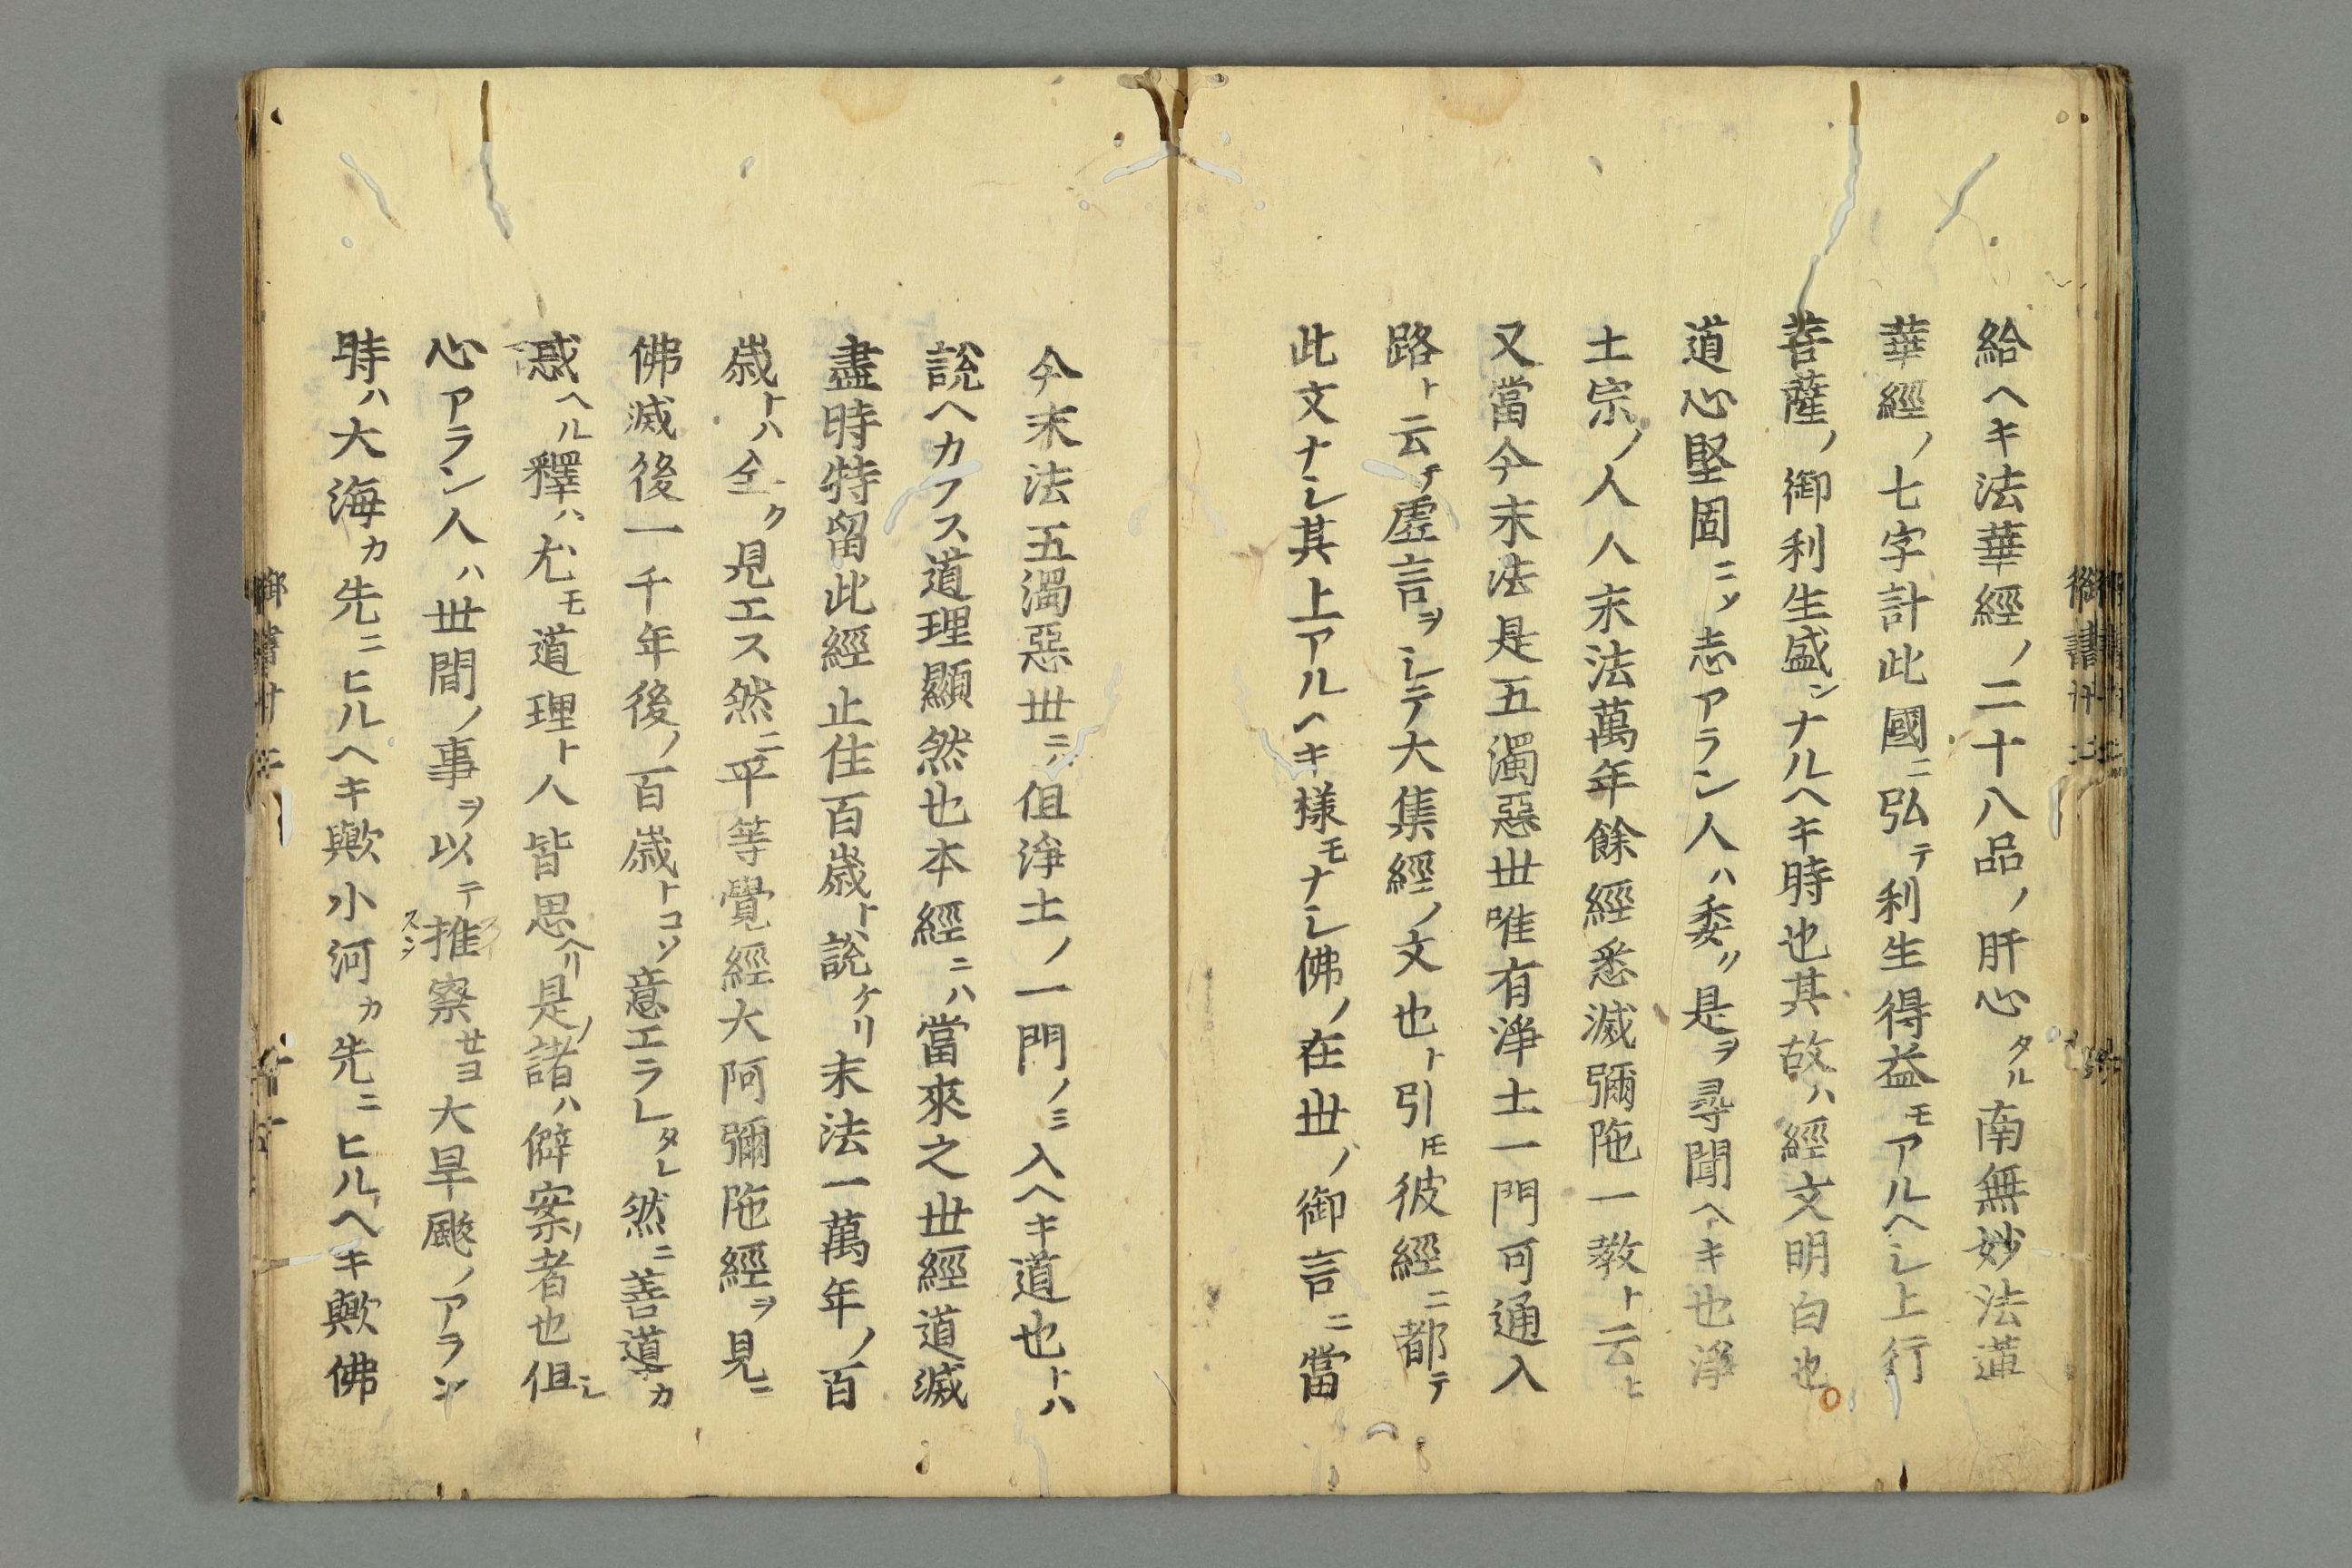 給ヘキ法華經ノ二十八品ノ肝心タル南無妙法蓮
華經ノ七字計此國ニ弘テ利生得益モアルヘシ上行
菩薩ノ御利生盛ンナルヘキ時也其故ハ經文明白也
道心堅固ニソ志アラン人ハ委ク是ヲ尋聞ヘキ也淨
土宗ノ人人末法萬年餘經悉滅彌陁一教ト云ヒ
又當今末法是五濁惡世唯有淨土一門可通入
路ト云テ虛言ヲシテ大集經ノ文也ト引𪜈彼經ニ都テ
此文ナシ其上アルヘキ樣モナシ佛ノ在世ノ御言ニ當
今末法五濁惡世ニハ但淨土ノ一門ノミ入ヘキ道也トハ
說ヘカラス道理顯然也本經ニハ當來之世經道滅
盡時特留此經止住百歲ト說ケリ末法一萬年ノ百
歲トハ全ク見エス然ニ平等覺經大阿彌陁經ヲ見ニ
佛滅後一千年後ノ百歲トコソ意エラレタレ然ニ善導カ
惑ヘル釋ハ尤モ道理ト人皆思ヘリ是ノ諸ハ僻案ノ者也但シ
心アラン人ハ世間ノ事ヲ以テ推察セヨ大旱颰ノアラン
時ハ大海カ先ニヒルヘキ歟小河カ先ニヒルヘキ歟佛
御書廿二